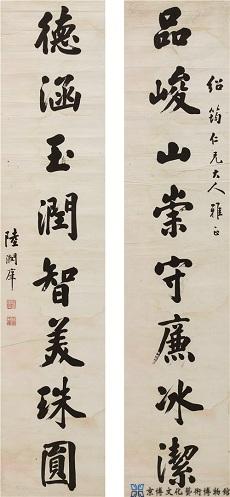 紹筠仁兄大人雅正
品峻山崇守廉冰潔
德涵玉潤智美珠圓
陸潤庠
京博文化藝術博物館